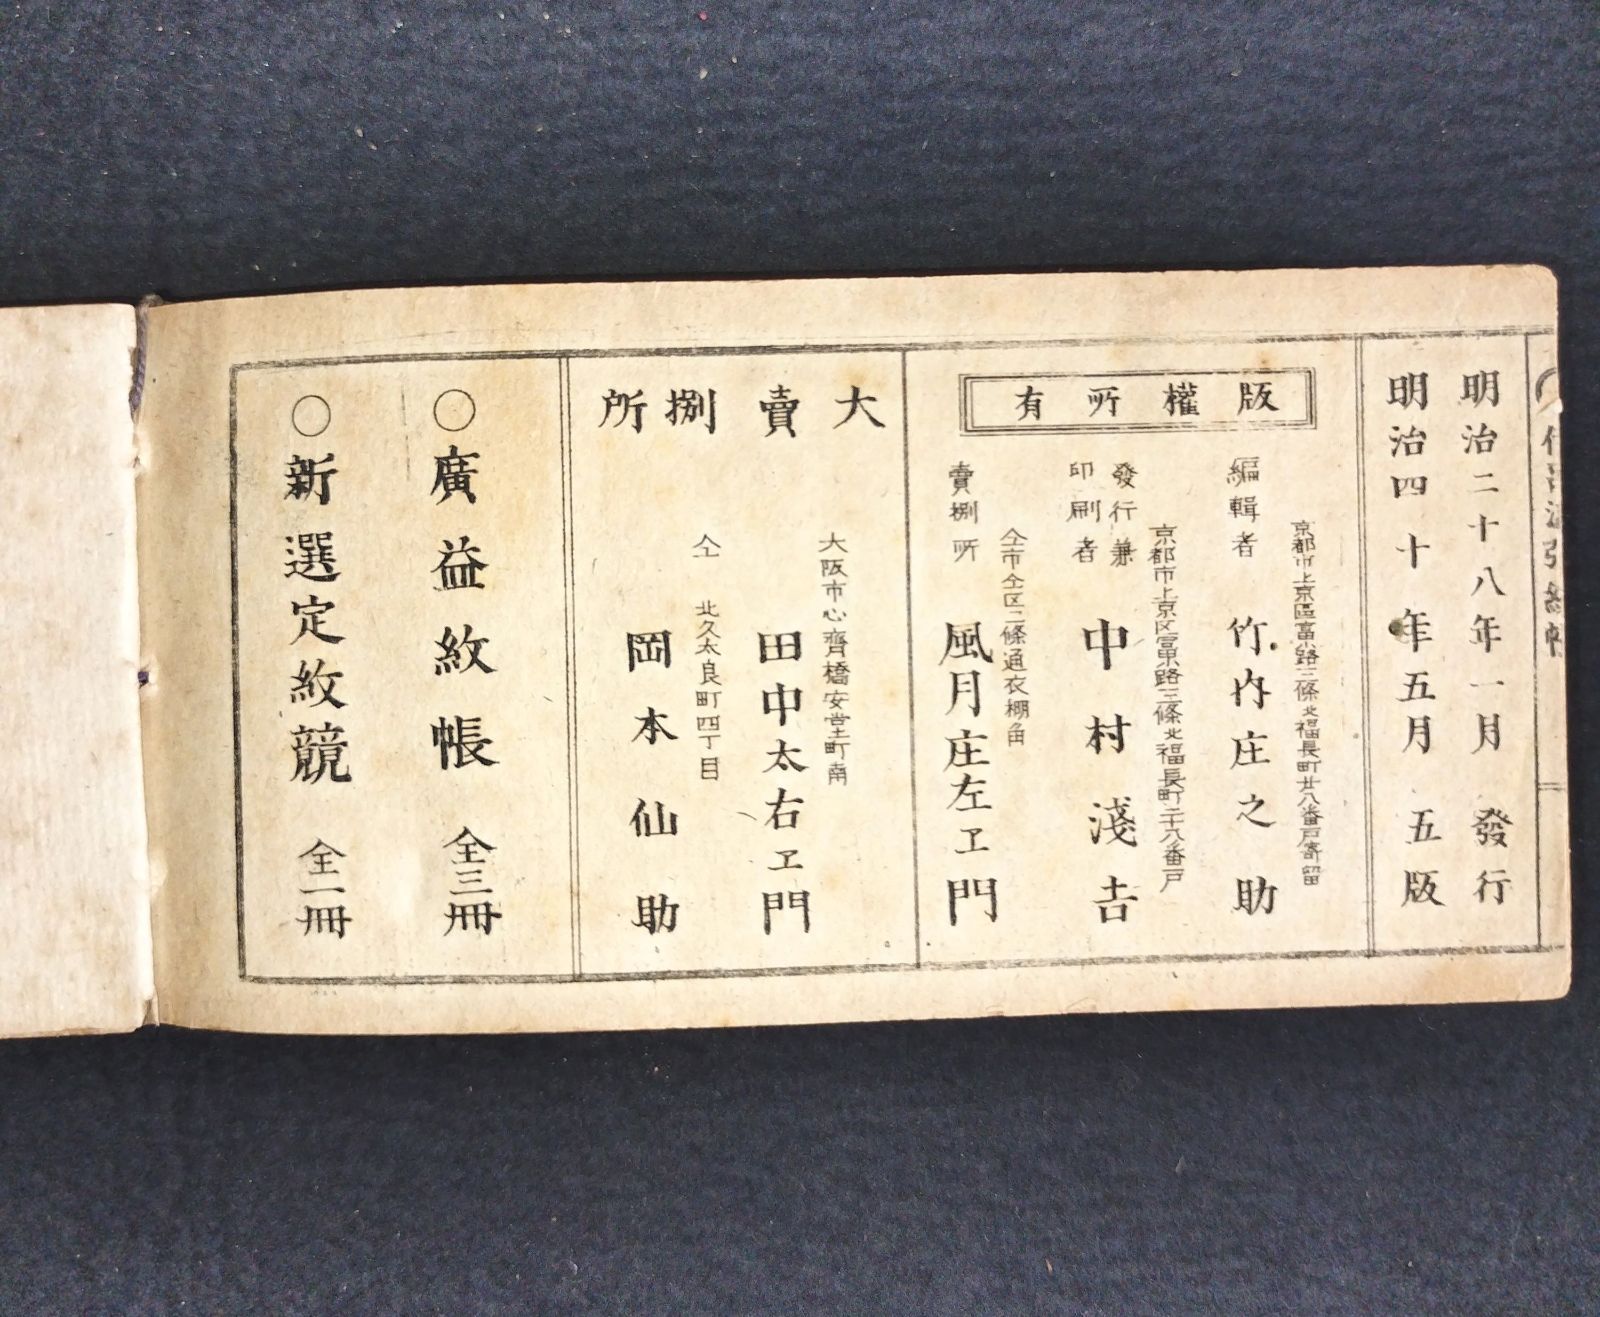 明治二十八年一月 發行
明治四十年五月 五版
版權所有
京都市上京區富小路三條北福長町廿八番戸寄留
編輯者 竹内庄之助
京都市上京区富小路三條北福長町二十八番戸
發行兼
印刷者 中村淺吉
仝市仝区二條通衣棚角
賣捌所 風月庄左ヱ門
大賣捌所
大阪市心齊橋安堂寺町南
田中太右ヱ門
仝 北久太良町四丁目
岡本仙助
○廣益紋帳 全三冊
○新選定紋競 全一冊